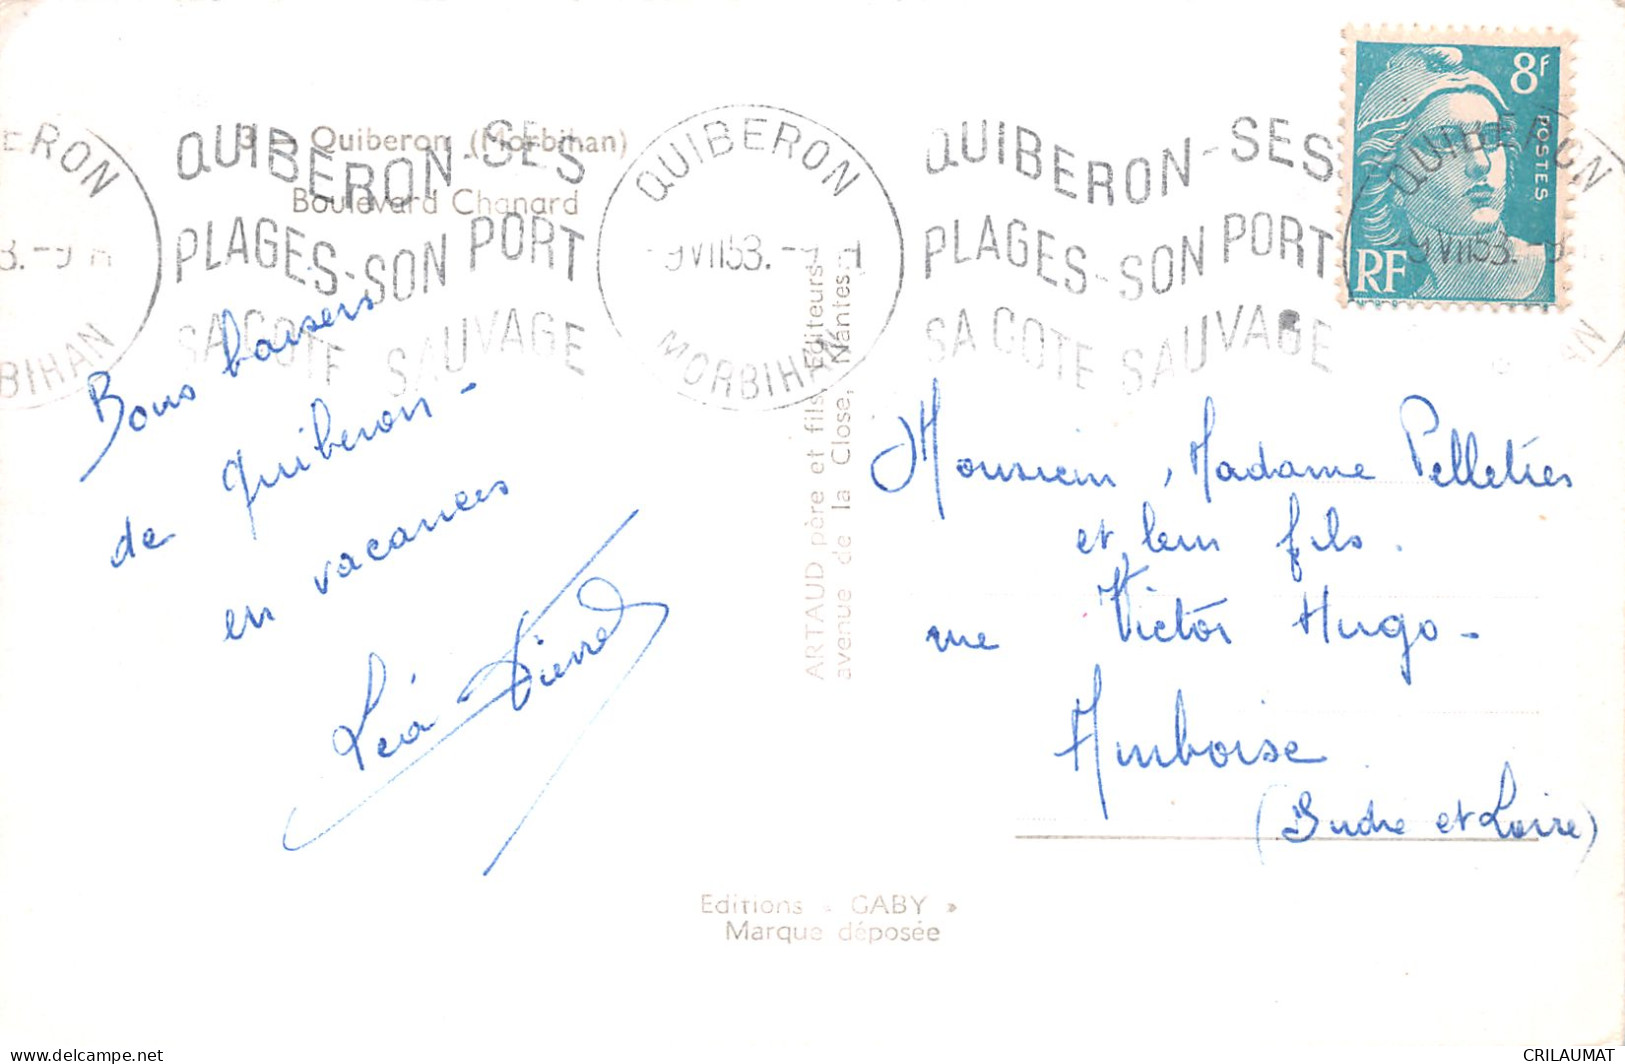 3 - Quiberon (Morbihan)
Boulevard Chanard
QUIBERON MORBIHAN
9 VII 53. - 9 H
QUIBERON-SES
PLAGES-SON PORT
SA COTE SAUVAGE
QUIBERON MORBIHAN
9 VII 53.
QUIBERON-SES
PLAGES-SON PORT
SA COTE SAUVAGE
8F
POSTES
RF
QUIBERON
9 VII 53.
Bons baisers
de Quiberon -
en vacances
Léa Pierre
ARTAUD père et fils, Éditeurs
avenue de la Close, Nantes.
Monsieur, Madame Pelletier
et leur fils.
rue Victor Hugo -
Amboise
(Indre et Loire)
Editions « GABY »
Marque déposée
delcampe.net
CRILAUMAT